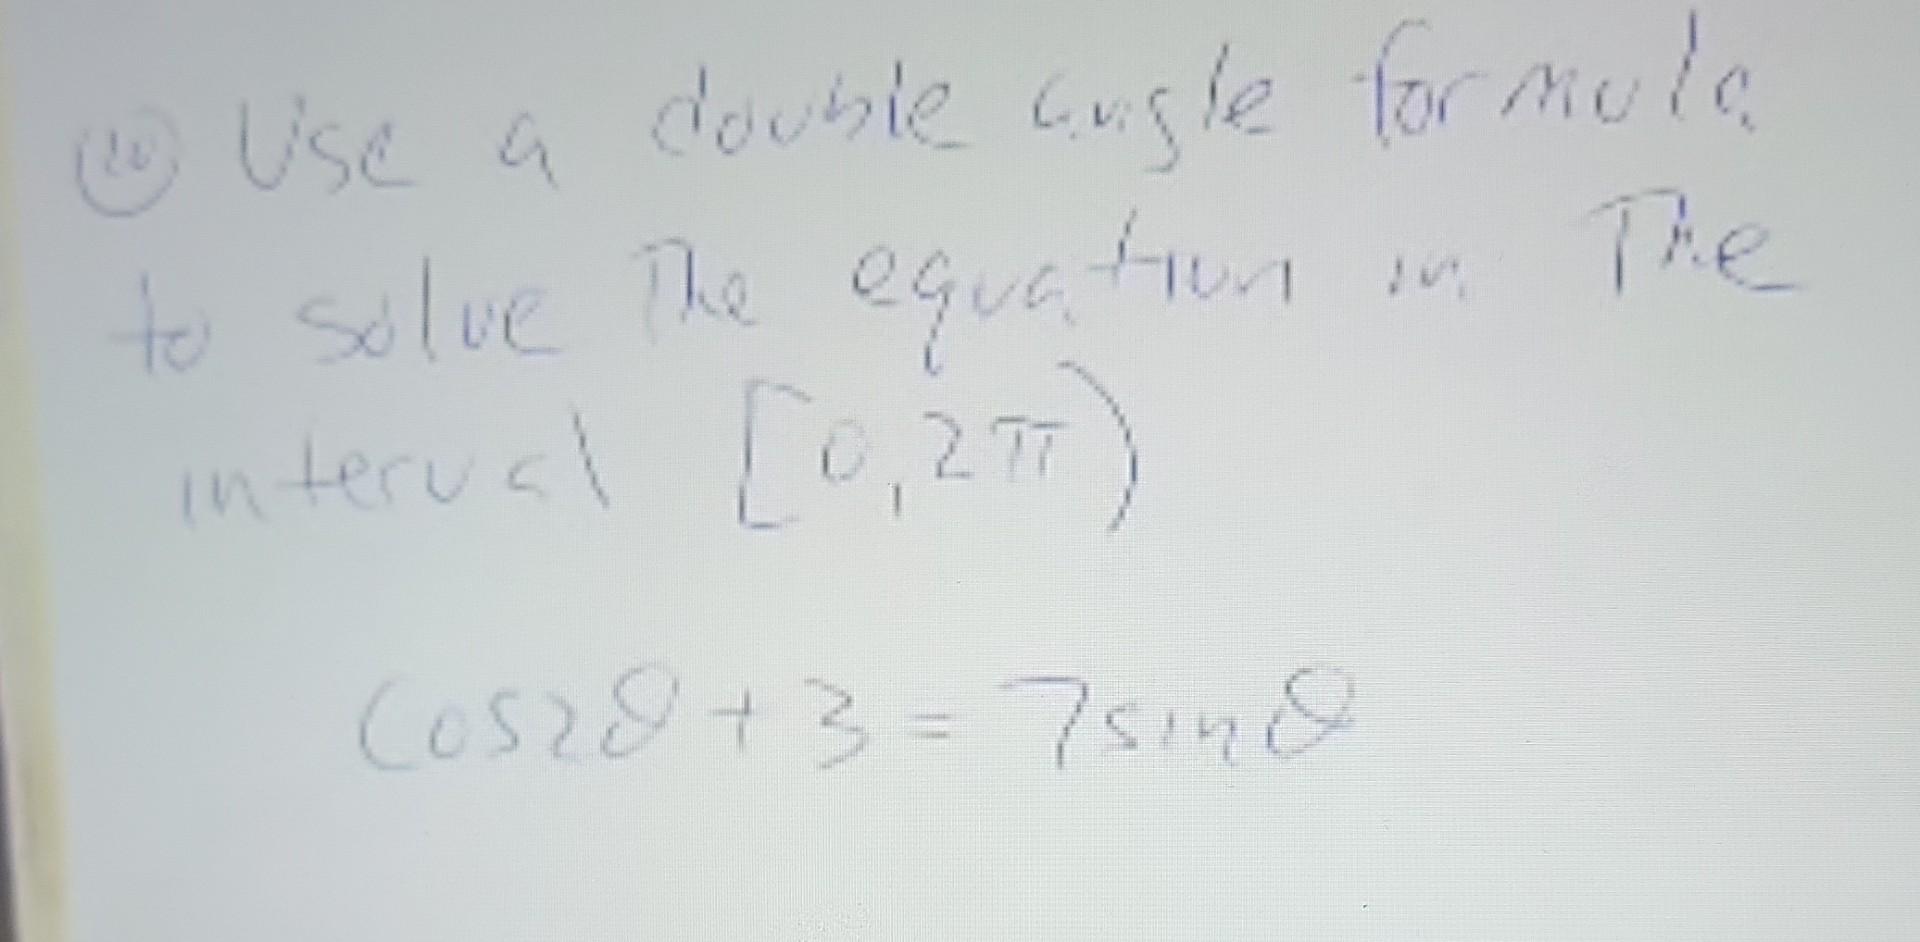 ⑩ Use a double angle formula
to solve The equation in The
interval [0,2π)
cos2θ+3=7sinθ